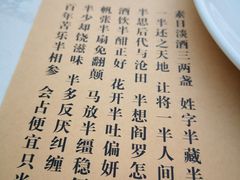 素日淡酒三两盏 姓字半藏半
一半还之天地 让将一半人间
半思后代与沧田 半想阎罗怎
酒饮半酣正好 花开半吐偏妍
帆张半扇免翻颠 马放半缰稳
半少却饶滋味 半多反厌纠缠
百年苦乐半相参 会占便宜只